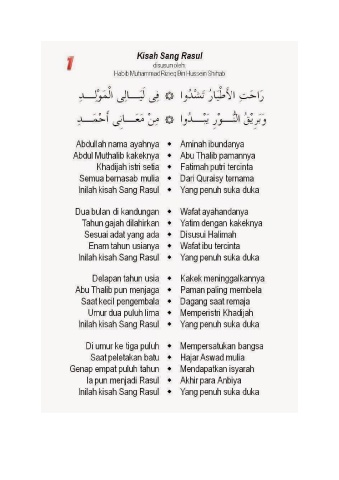 1
Kisah Sang Rasul
disusun oleh:
Habib Muhammad Rizieq Bin Hussein Shihab
رَاحَتِ الأَطْيَارُ تَشْدُوا ۞ فِى لَيَالِى الْمَوْلِدِ
وَبَرِيْقُ النُّوْرِ يَبْدُوا ۞ مِنْ مَعَانِى أَحْمَدِ
Abdullah nama ayahnya ◆ Aminah ibundanya
Abdul Muthalib kakeknya ◆ Abu Thalib pamannya
Khadijah istri setia ◆ Fatimah putri tercinta
Semua bernasab mulia ◆ Dari Quraisy ternama
Inilah kisah Sang Rasul ◆ Yang penuh suka duka
Dua bulan di kandungan ◆ Wafat ayahandanya
Tahun gajah dilahirkan ◆ Yatim dengan kakeknya
Sesuai adat yang ada ◆ Disusui Halimah
Enam tahun usianya ◆ Wafat ibu tercinta
Inilah kisah Sang Rasul ◆ Yang penuh suka duka
Delapan tahun usia ◆ Kakek meninggalkannya
Abu Thalib pun menjaga ◆ Paman paling membela
Saat kecil pengembala ◆ Dagang saat remaja
Umur dua puluh lima ◆ Memperistri Khadijah
Inilah kisah Sang Rasul ◆ Yang penuh suka duka
Di umur ke tiga puluh ◆ Mempersatukan bangsa
Saat peletakan batu ◆ Hajar Aswad mulia
Genap empat puluh tahun ◆ Mendapatkan isyarah
Ia pun menjadi Rasul ◆ Akhir para Anbiya
Inilah kisah Sang Rasul ◆ Yang penuh suka duka